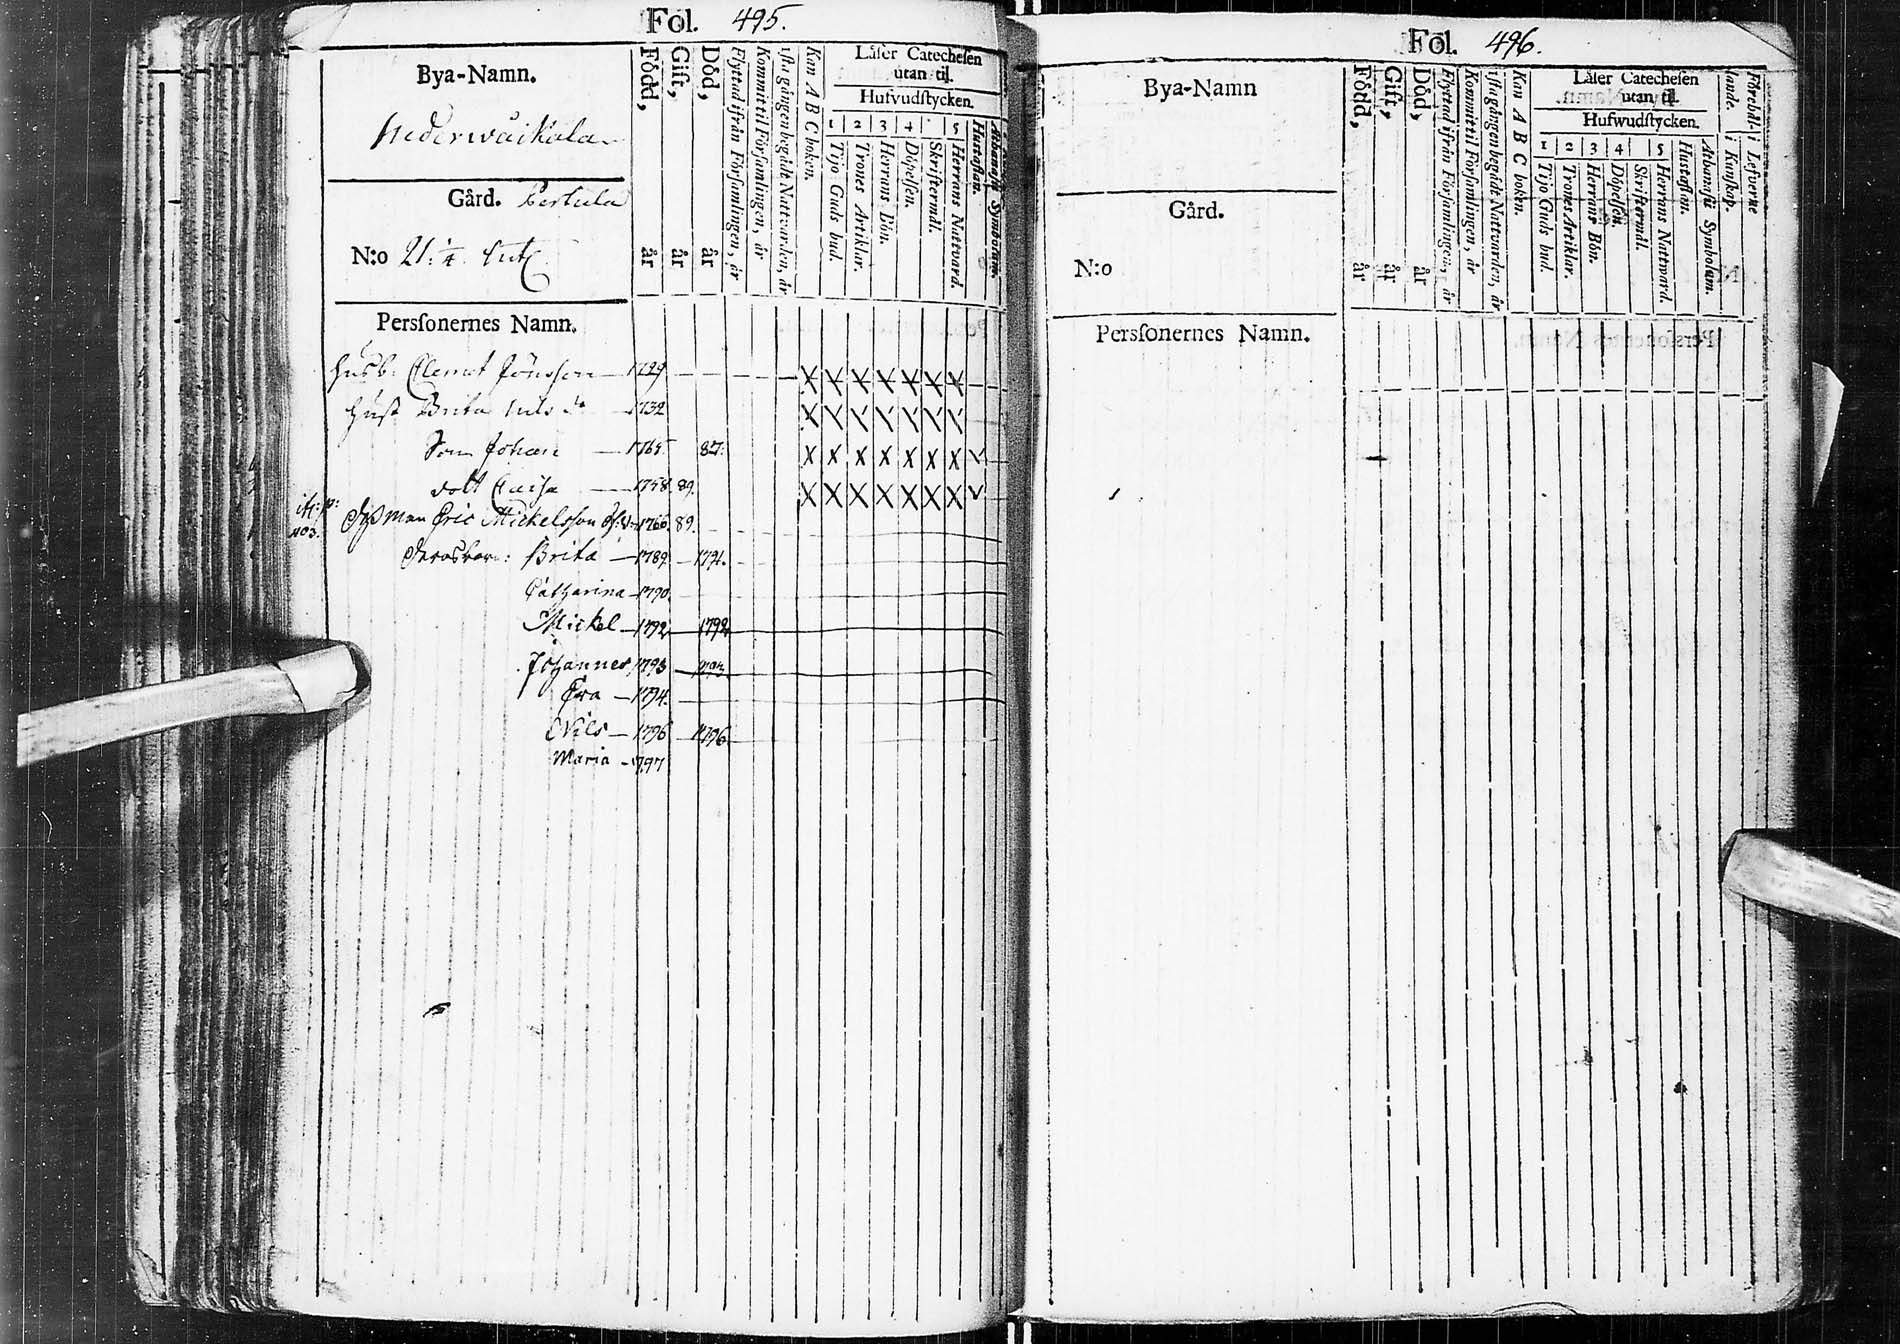 Fol. 495.
Bya-Namn.
Nederwåikala
Gård. Pertula
N:o 21: 1/4
Född, år
Gift, år
Död, år
Flyttad ifrån Församlingen, år
Kommit til Församlingen, år
1sta gången begådt Nattvarden, år
Kan A B C boken.
Låser Catechesen
utan til.
Hufvudstycken.
1 2 3 4 5
Tijo Guds bud.
Trones Artiklar.
Herrans Bön.
Döpelsen.
Skriftermål.
Herrans Nattvard.
Hustaflan.
Athanasii Symbolum.
Perssonernes Namn.
Husb: Clemet Jönsson 1729
Hust Brita Nils dr 1732
Son Johan 1765 87.
dott Caisa 1758 89.
Mickelsson 1766. 89.
403.
Brita 1789. 1791.
Catharina 1790.
Mickel 1792 1792
Johannes 1793
Eva 1794.
Nils 1796 1796
Maria 1797
Fol. 496.
Bya-Namn
Gård.
N:o
Född, år
Gift, år
Död, år
Flyttad ifrån Församlingen, år
Kommit til Församlingen, år
1sta gången begådt Nattvarden, år
Kan A B C boken.
Låser Catechesen
utan til.
Hufwudstycken.
1 2 3 4 5
Tijo Guds bud.
Trones Artiklar.
Herrans Bön.
Döpelsen.
Skriftermål.
Herrans Nattward.
Hustaflan.
Athanasii Symbolum.
i Kunskap.
i Lefverne
Perssonernes Namn.